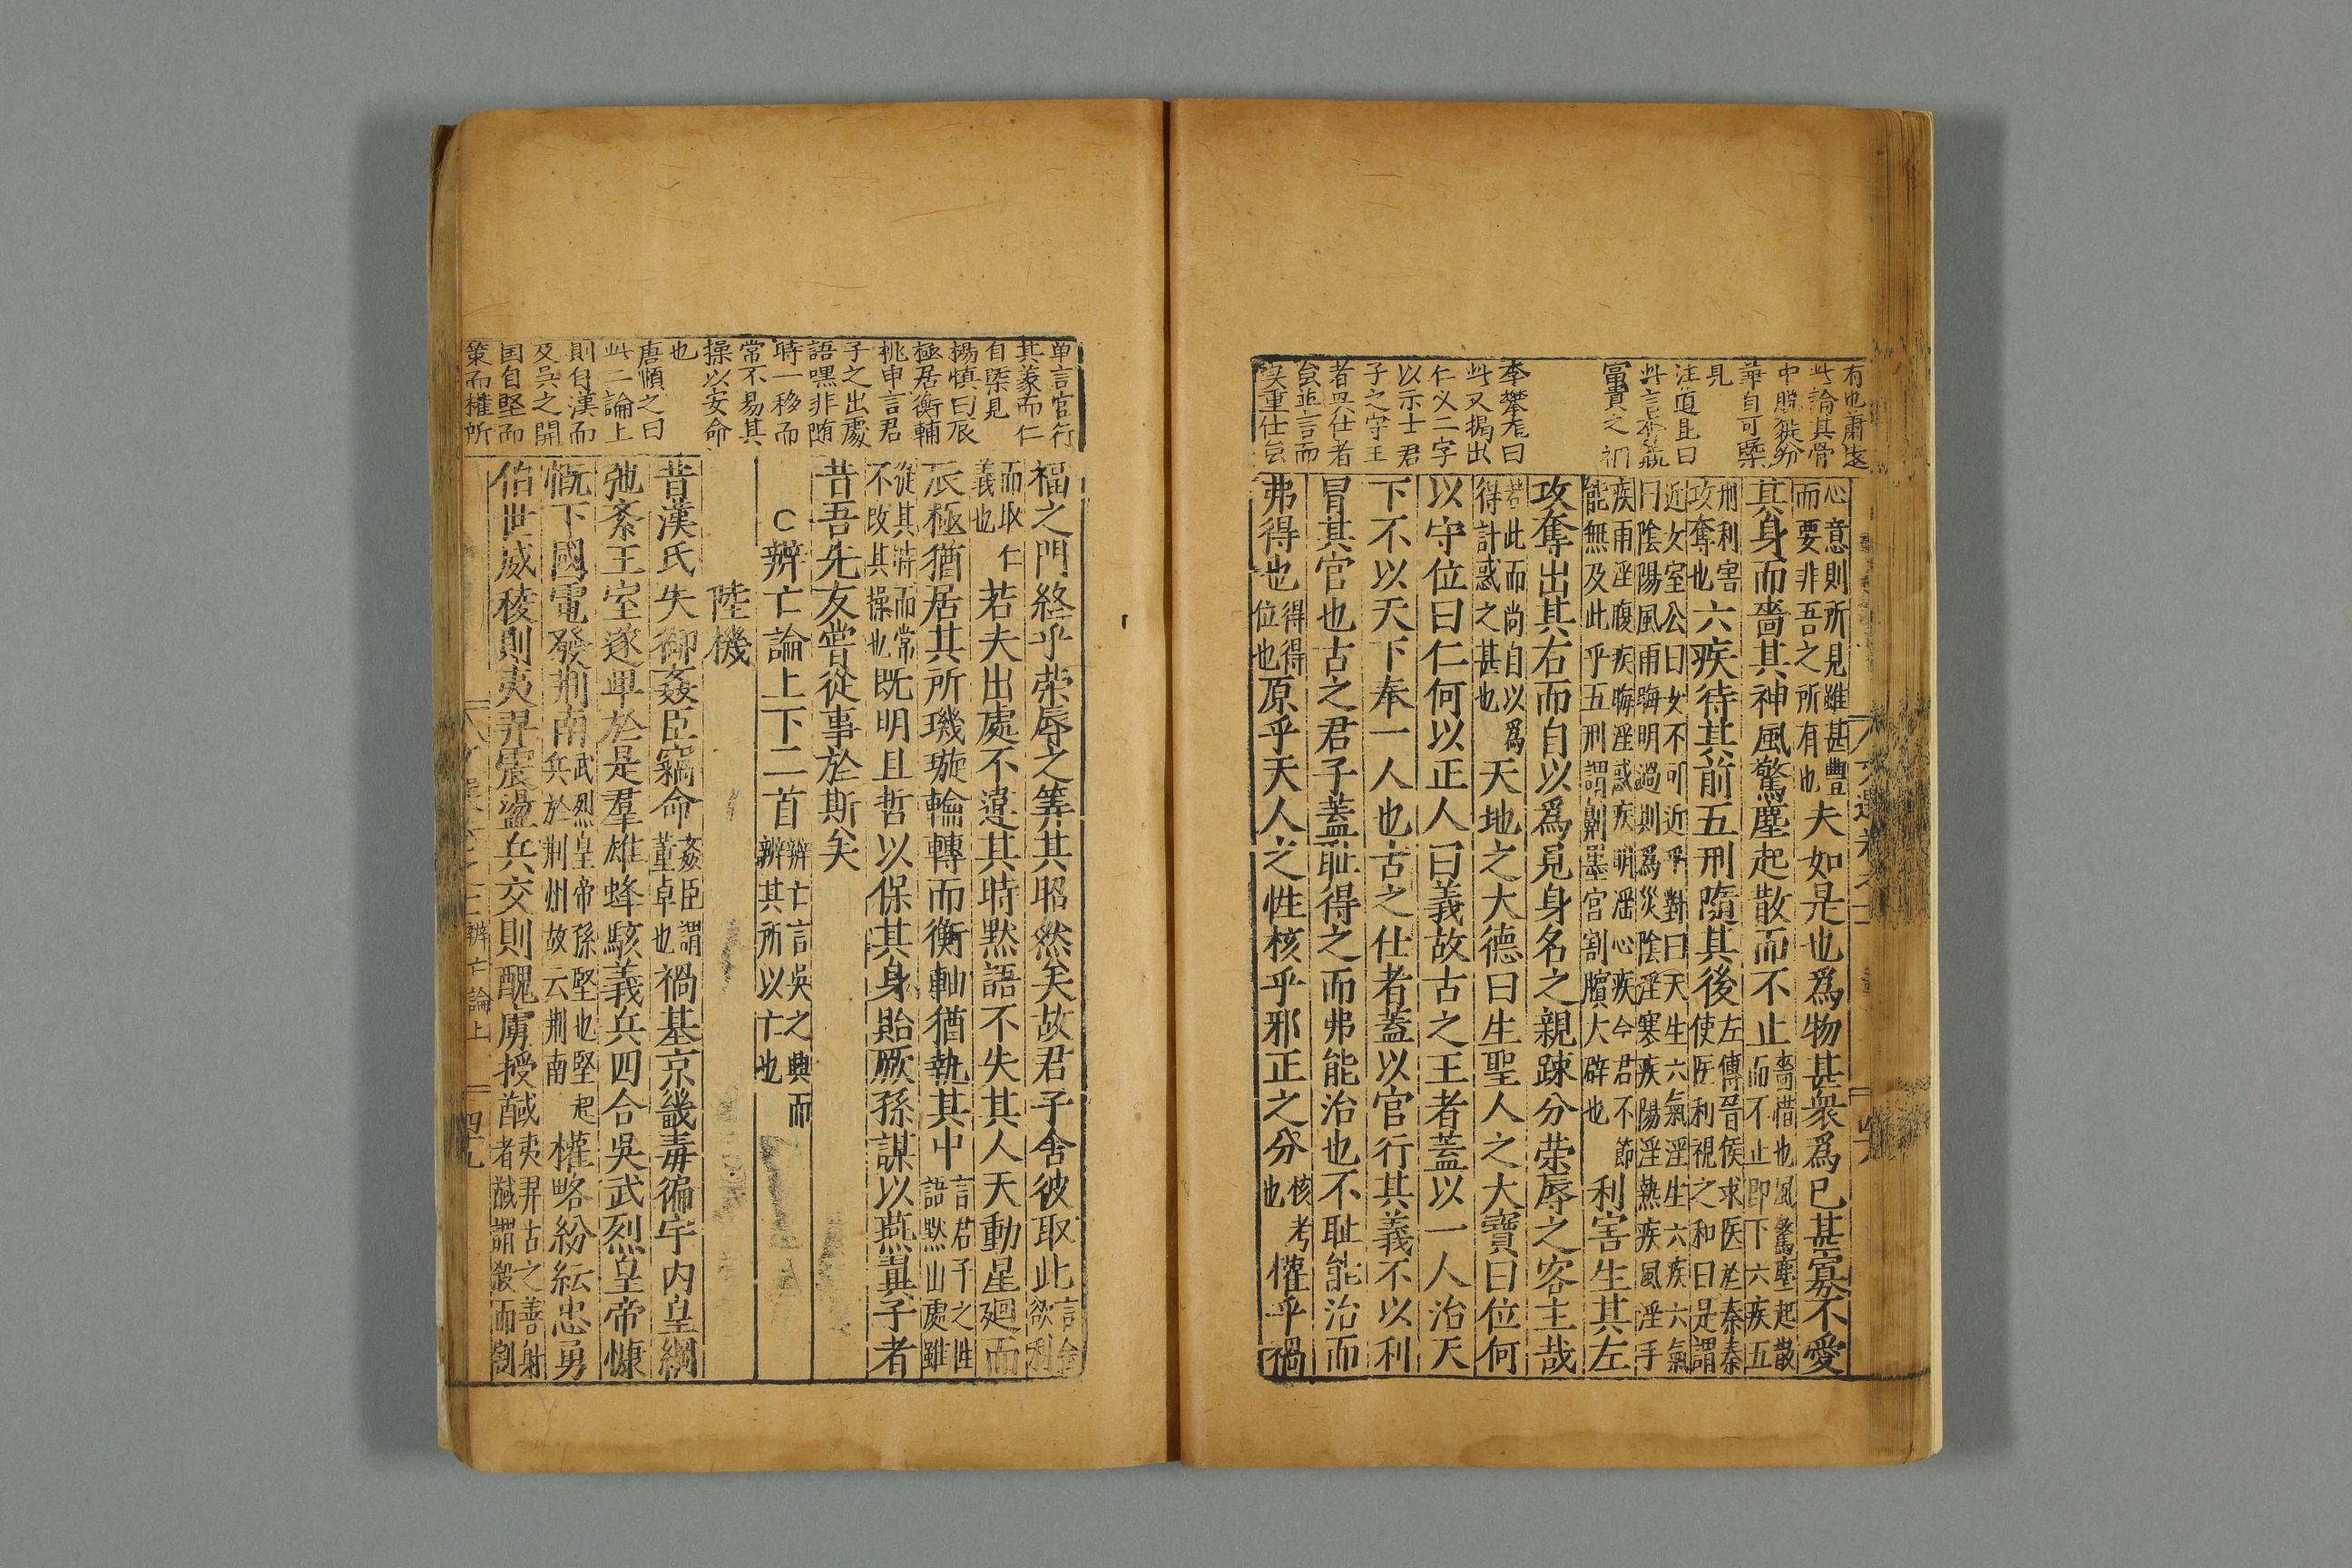 有也蕭遠
此論其骨
中脫
華自可槩
見
汪道昆曰
此言
富貴之
李攀龙曰
此又掲出
仁义二字
以示士君
子之守王
者只仕者
並言而
重仕
心意則所見雖甚豐
而要非吾之所有也
夫如是也爲物甚衆爲已甚寡不愛
其身而嗇其神風驚塵起散而不止
嗇惜也風驚塵起散
而不止即下六疾五
刑利害
攻奪也
六疾待其前五刑隨其後
左傳晉侯求医於秦秦
使医和視之和曰是謂
近女室公曰女不可近乎對曰天生六氣淫生六疾六氣
曰陰陽風雨晦明過則爲災陰淫寒疾陽淫熱疾風淫手
疾雨淫腹疾晦淫惑疾明淫心疾今君不節
能無及此乎五刑謂劓墨宮割臏大辟也
利害生其左
攻奪出其右而自以爲見身名之親踈分荣辱之客主哉
若此而尚自以爲
得計惑之甚也
天地之大德曰生聖人之大寶曰位何
以守位曰仁何以正人曰義故古之王者蓋以一人治天
下不以天下奉一人也古之仕者蓋以官行其義不以利
冐其官也古之君子蓋耻得之而弗能治也不耻能治而
弗得也
得得
位也
原乎天人之性核乎邪正之分
核考
也
權乎禍
单言官行
其義而仁
自槩見
楊慎曰辰
極居衡輔
桃申言君
子之出處
語嘿非随
時一移而
常不易其
操以安命
也
唐順之曰
此二論上
則自漢而
及吳之開
国自堅而
策而權所
福之門終乎荣辱之筭其昭然矣故君子舍彼取此
言舍
欲利
而取仁
義也
若夫出處不違其時黙語不失其人天動星廻而
辰極猶居其所璣璇輪轉而衡軸猶執其中
言君子之性
語黙出處雖
從其時而常
不改其操也
既明且哲以保其身貽厥孫謀以燕翼子者
昔吾先友嘗從事於斯矣
辨亡論上下二首
辨亡言吳之興而
辨其所以亡也
陸機
昔漢氏失御姦臣竊命
姦臣謂
董卓也
禍基京畿毒徧宇内皇綱
弛紊王室遂卑於是羣雄蜂駭義兵四合吳武烈皇帝慷
慨下國電發荆南
武烈皇帝孫堅也堅起
兵於荆州故云荆南
權略紛紜忠勇
伯世威稜則夷羿震盪兵交則醜虜授馘
夷羿古之善射
者馘謂殺而割
辨亡論上
四九